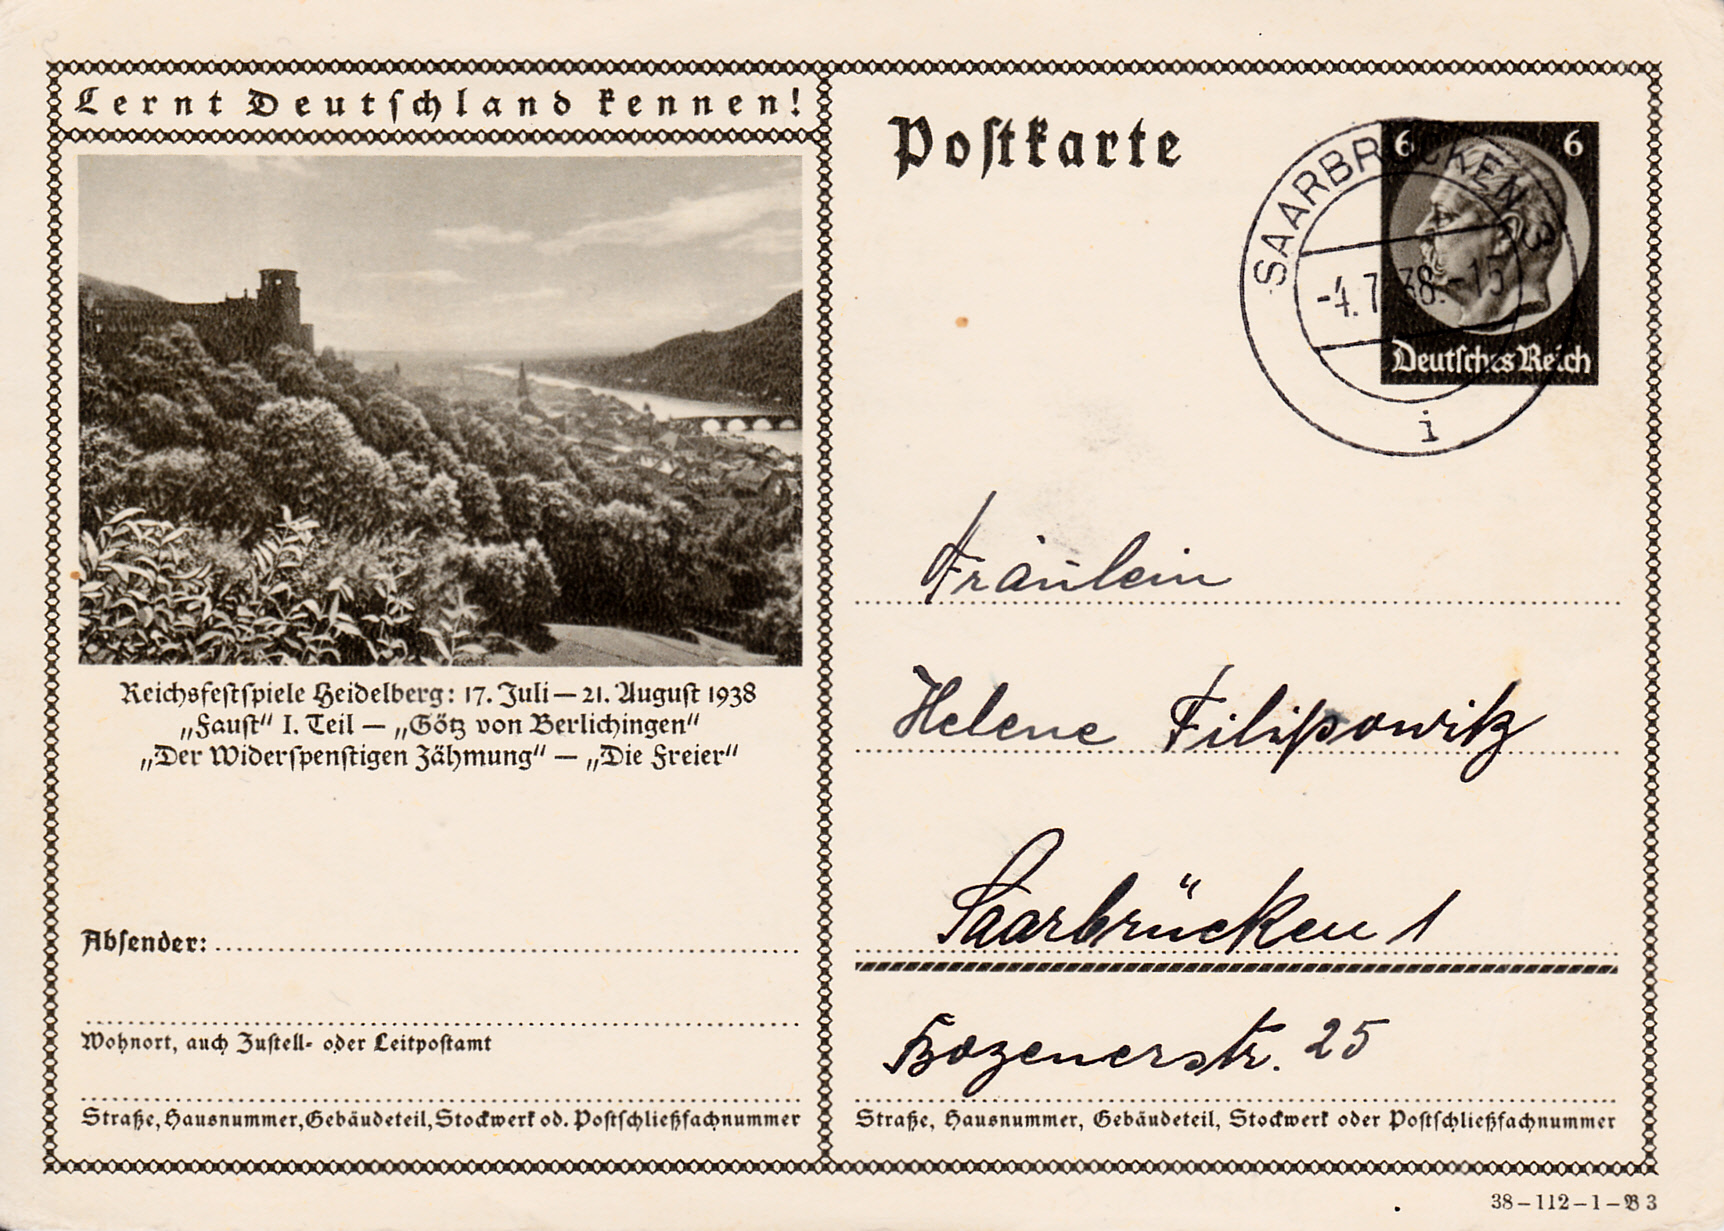 Lernt Deutschland kennen!
Reichsfestspiele Heidelberg: 17. Juli — 21. August 1938
„Faust“ I. Teil — „Götz von Berlichingen“
„Der Widerspenstigen Zähmung“ — „Die Freier“
Absender:
Wohnort, auch Zustell- oder Leitpostamt
Straße, Hausnummer, Gebäudeteil, Stockwerk od. Postschließfachnummer
Postkarte
6 6
Deutsches Reich
SAARBRÜCKEN 3
-4.7.38.-15
i
Fräulein
Helene Filipowitz
Saarbrücken 1
Bozenerstr. 25
Straße, Hausnummer, Gebäudeteil, Stockwerk oder Postschließfachnummer
38-112-1-B 3